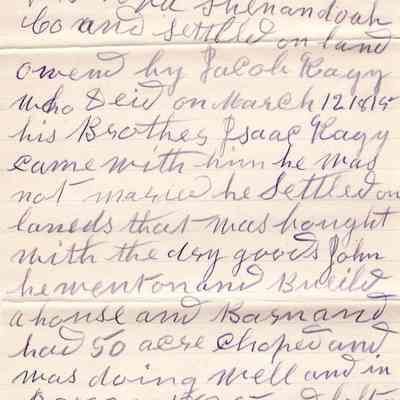 Shenandoah
Co and settled on land
owend by Jacob Kagy
who Deid on March 12 1815
his Brother Isaac Kagy
came with him he was
not maried he Settled on
laneds that was bought
with the dry goods John
he went on and Bueild
a house and Barn and
had 50 acre choped and
was doing well and in